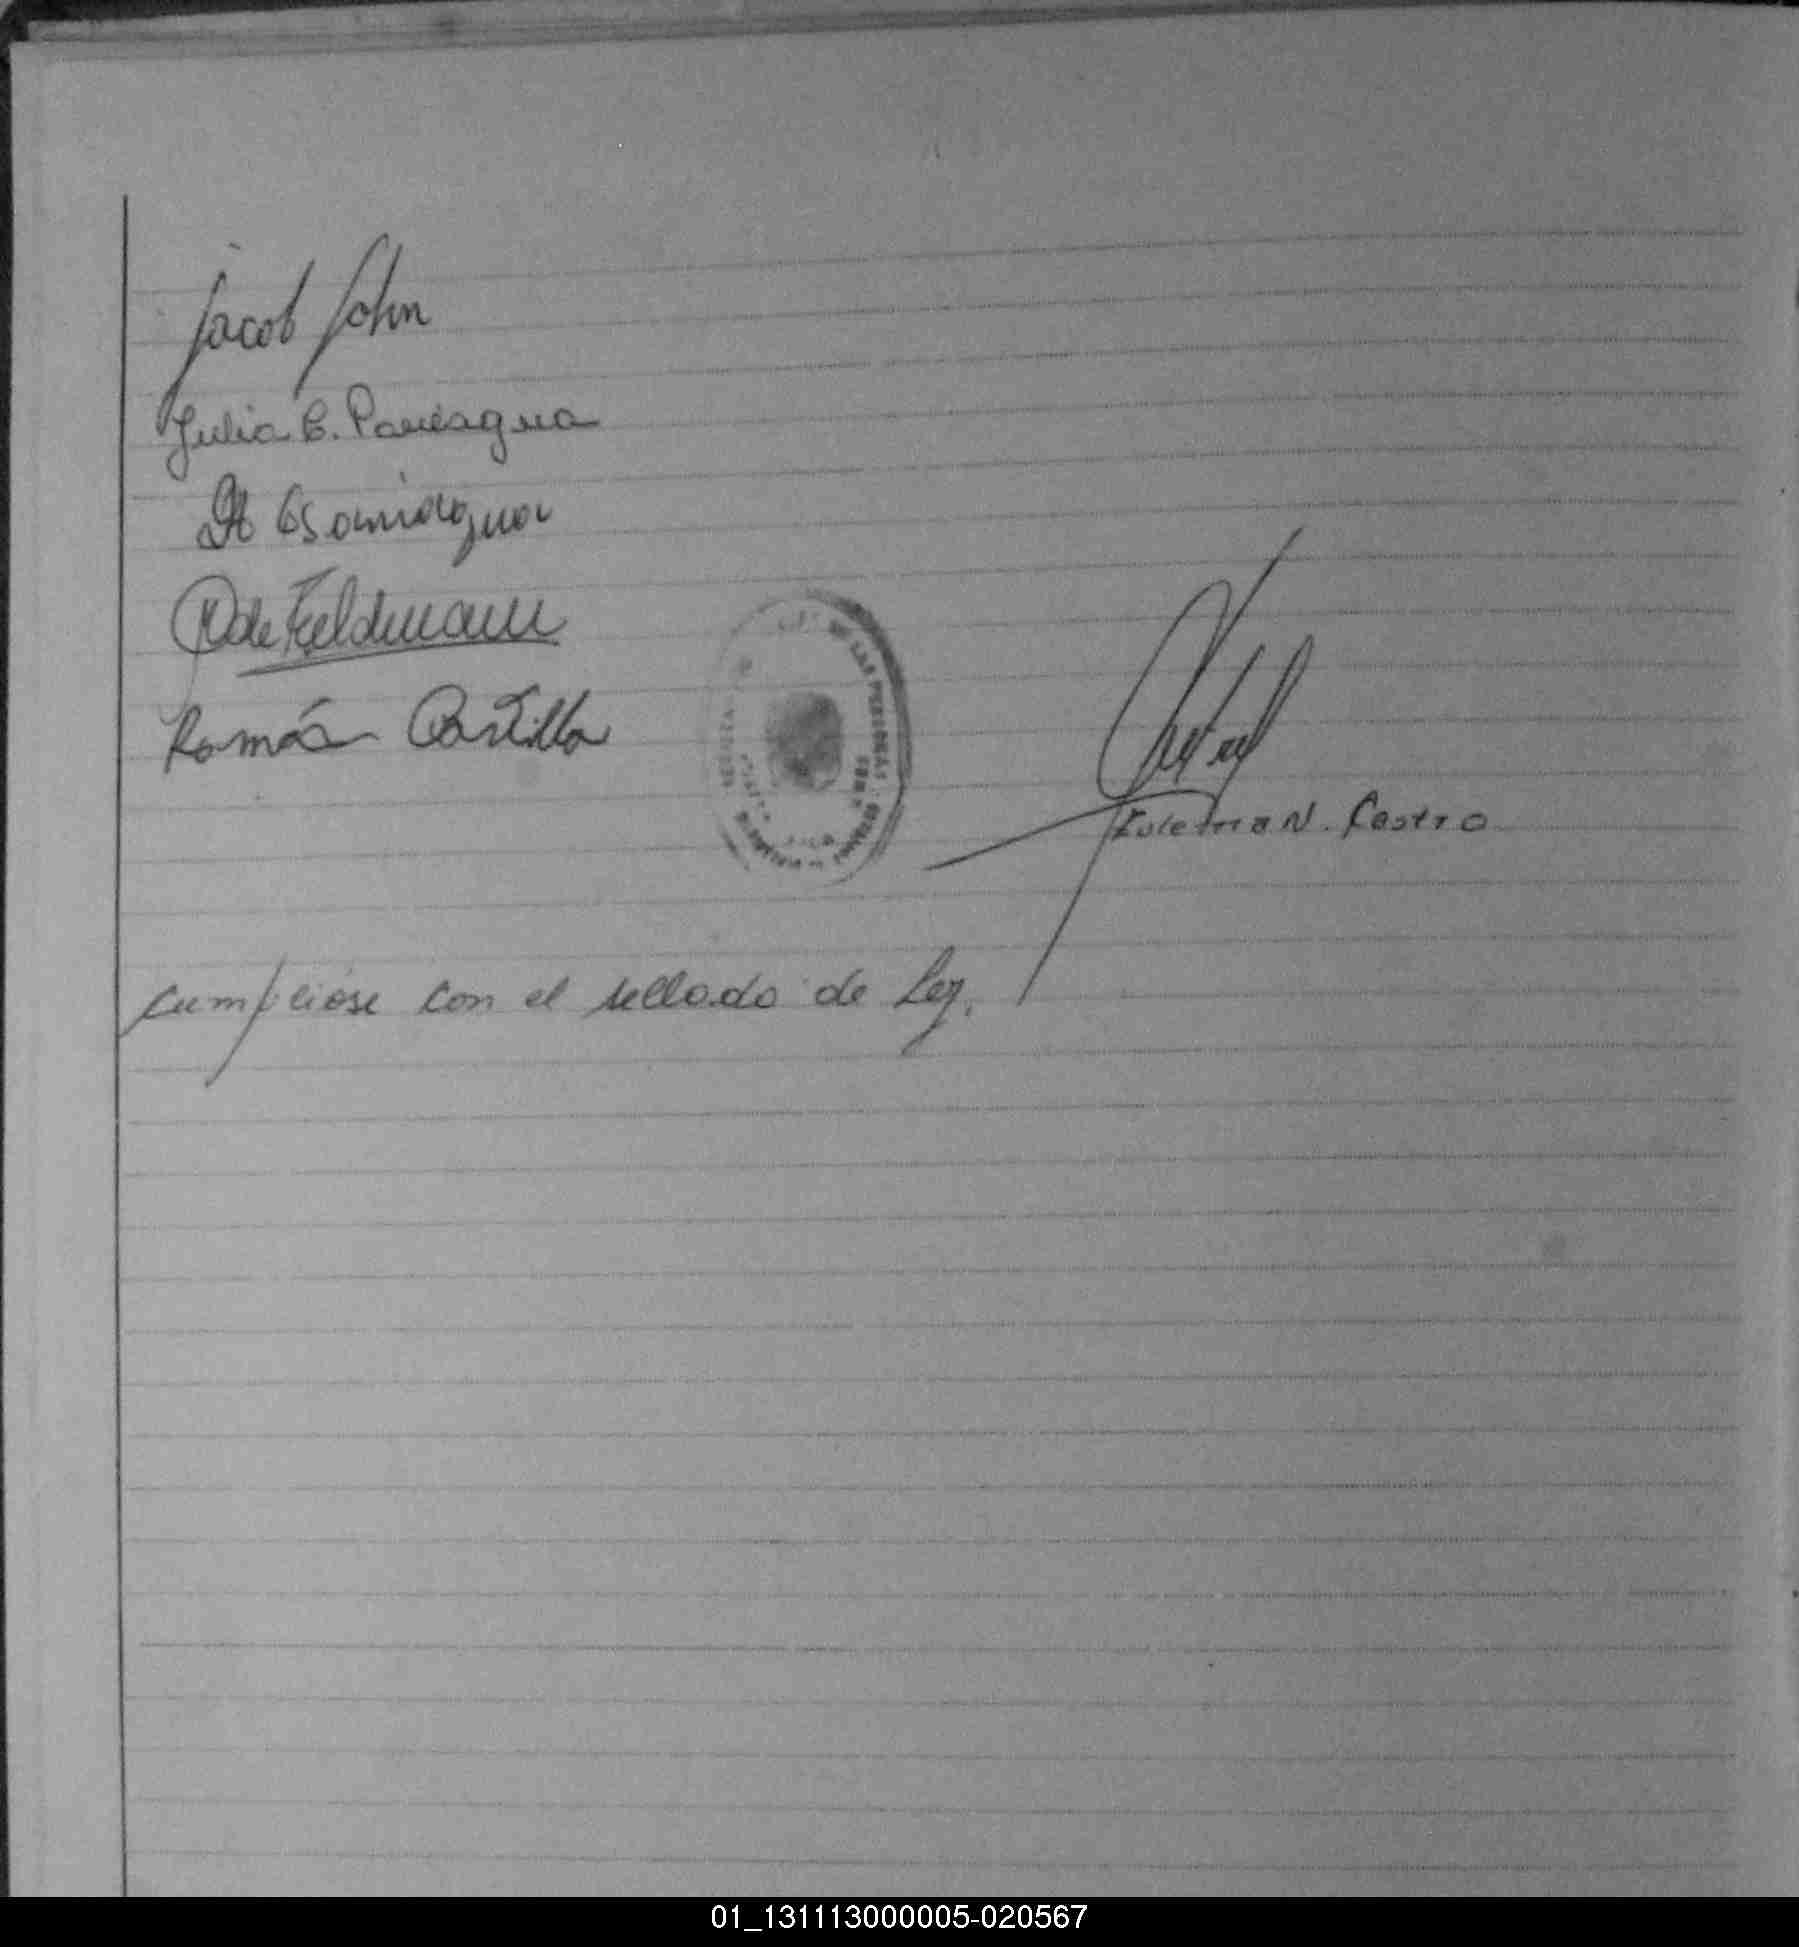 Jacob John
Julia C. Paniagua
Paniagua
de Feldmann
Román Castilla
DE LAS PERSONAS
Zulema N. Castro
Cumplióse con el sellado de Ley.
01_131113000005-020567